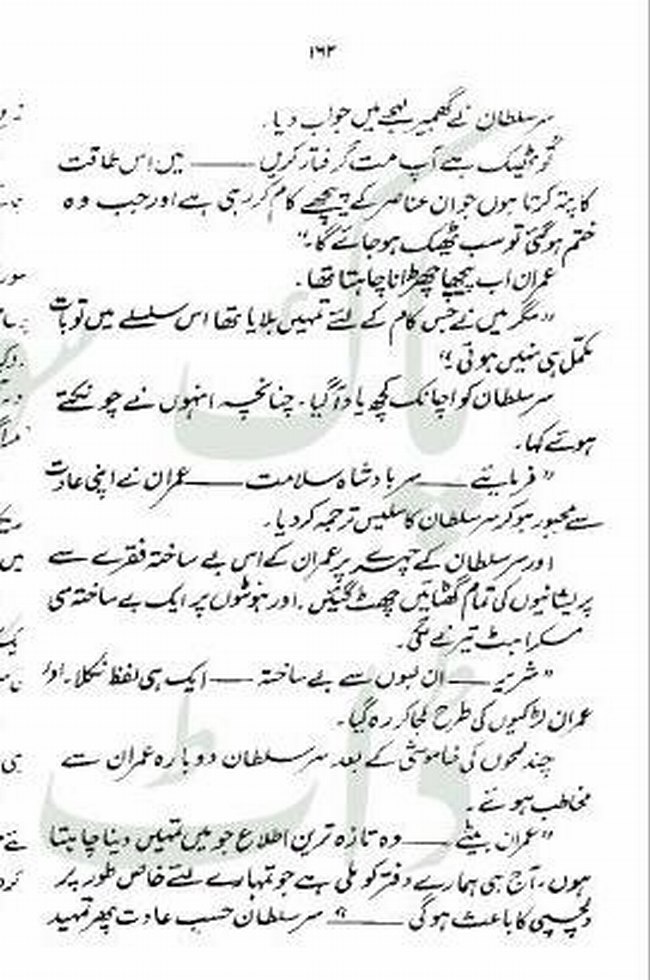 ۱۶۲
سرسلطان نے گھمبیر لہجے میں جواب دیا۔
"تو ٹھیک ہے آپ مت گرفتار کریں —— میں اس طاقت
کا پتہ کرتا ہوں جو ان عناصر کے پیچھے کام کر رہی ہے اور جب وہ
ختم ہو گئی تو سب ٹھیک ہو جائے گا۔"
عمران اب پیچھا چھڑانا چاہتا تھا۔
"مگر میں نے جس کام کے لئے تمہیں بلایا تھا اس سلسلے میں تو بات
مکمل ہی نہیں ہوئی۔"
سرسلطان کو اچانک کچھ یاد آ گیا۔ چنانچہ انہوں نے چونکتے
ہوئے کہا۔
"فرمایئے —— سر بادشاہ سلامت —— عمران نے اپنی عادت
سے مجبور ہو کر سرسلطان کا سلیس ترجمہ کر دیا۔
اور سرسلطان کے چہرے پر عمران کے اس بے ساختہ فقرے سے
پریشانیوں کی تمام گھٹائیں چھٹ گئیں۔ اور ہونٹوں پر ایک بے ساختہ سی
مسکراہٹ تیرنے لگی۔
"شریر —— ان لبوں سے بے ساختہ —— ایک ہی لفظ نکلا۔ اور
عمران لڑکیوں کی طرح لجا کر رہ گیا۔
چند لمحوں کی خاموشی کے بعد سرسلطان دوبارہ عمران سے
مخاطب ہوئے۔
"عمران بیٹے —— وہ تازہ ترین اطلاع جو میں تمہیں دینا چاہتا
ہوں۔ آج ہی ہمارے دفتر کو ملی ہے جو تمہارے لئے خاص طور پر
دلچسپی کا باعث ہو گی ——" سرسلطان حسب عادت پھر تمہید